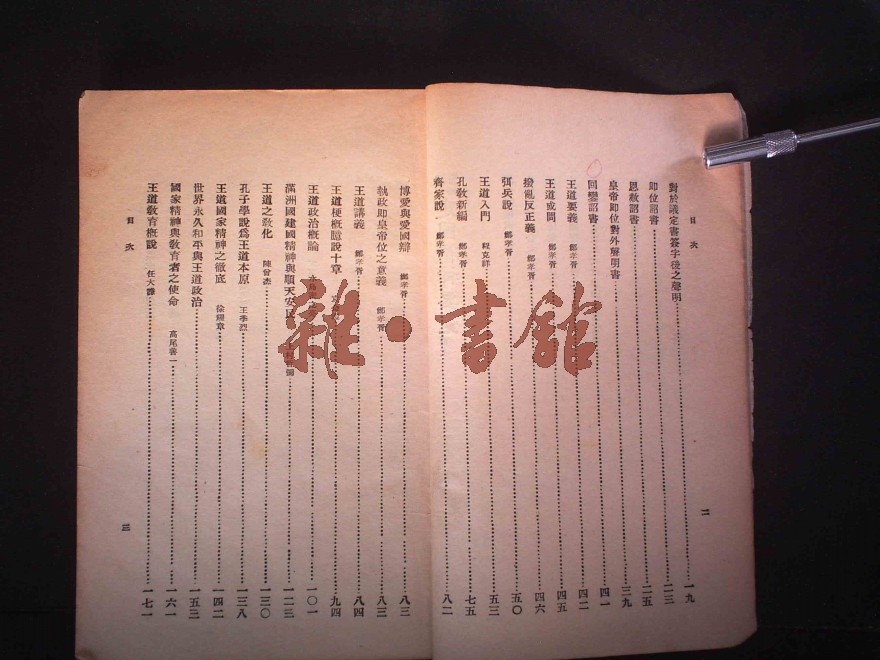 目次
對於議定書簽字後之聲明 一九
即位詔書 二三
恩赦詔書 二五
皇帝即位對外聲明書 三九
回鑾詔書 四一
王道要義 鄭孝胥 四二
王道或問 四五
撥亂反正義 鄭孝胥 四六
弭兵說 鄭孝胥 五〇
王道入門 程克祥 五三
孔敎新編 鄭孝胥 七五
齊家說 鄭孝胥 八二
二
博愛與愛國辯 鄭孝胥 八三
執政即皇帝位之意義 鄭孝胥 八三
王道講義 鄭孝胥 八四
王道梗概臆說十章 九四
王道政治概論 一〇一
滿洲國建國精神與順天安民 一二三
王道之敎化 陳曾杰 一三〇
孔子學說爲王道本原 王季烈 一三八
王道國家精神之徹底 一四二
世界永久和平與王道政治 一五三
國家精神與敎育者之使命 高尾善一 一六一
王道敎育概說 一七一
目次
三
雜·書館